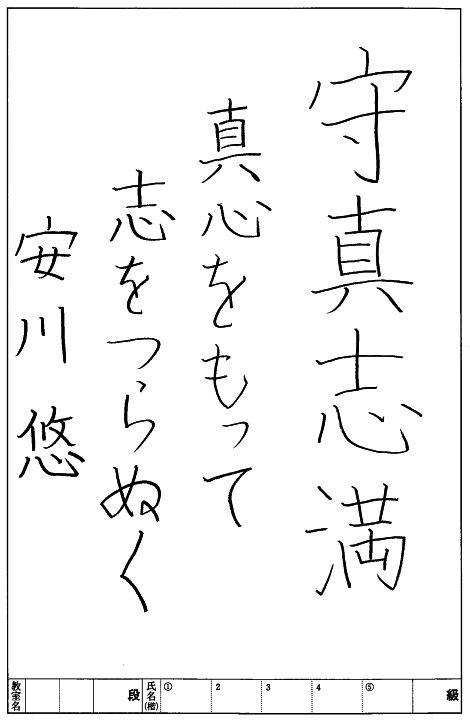 守真志満
真心をもって
志をつらぬく
安川悠
教室名
段
氏名(楷)
① 2 3 4 ⑤
級